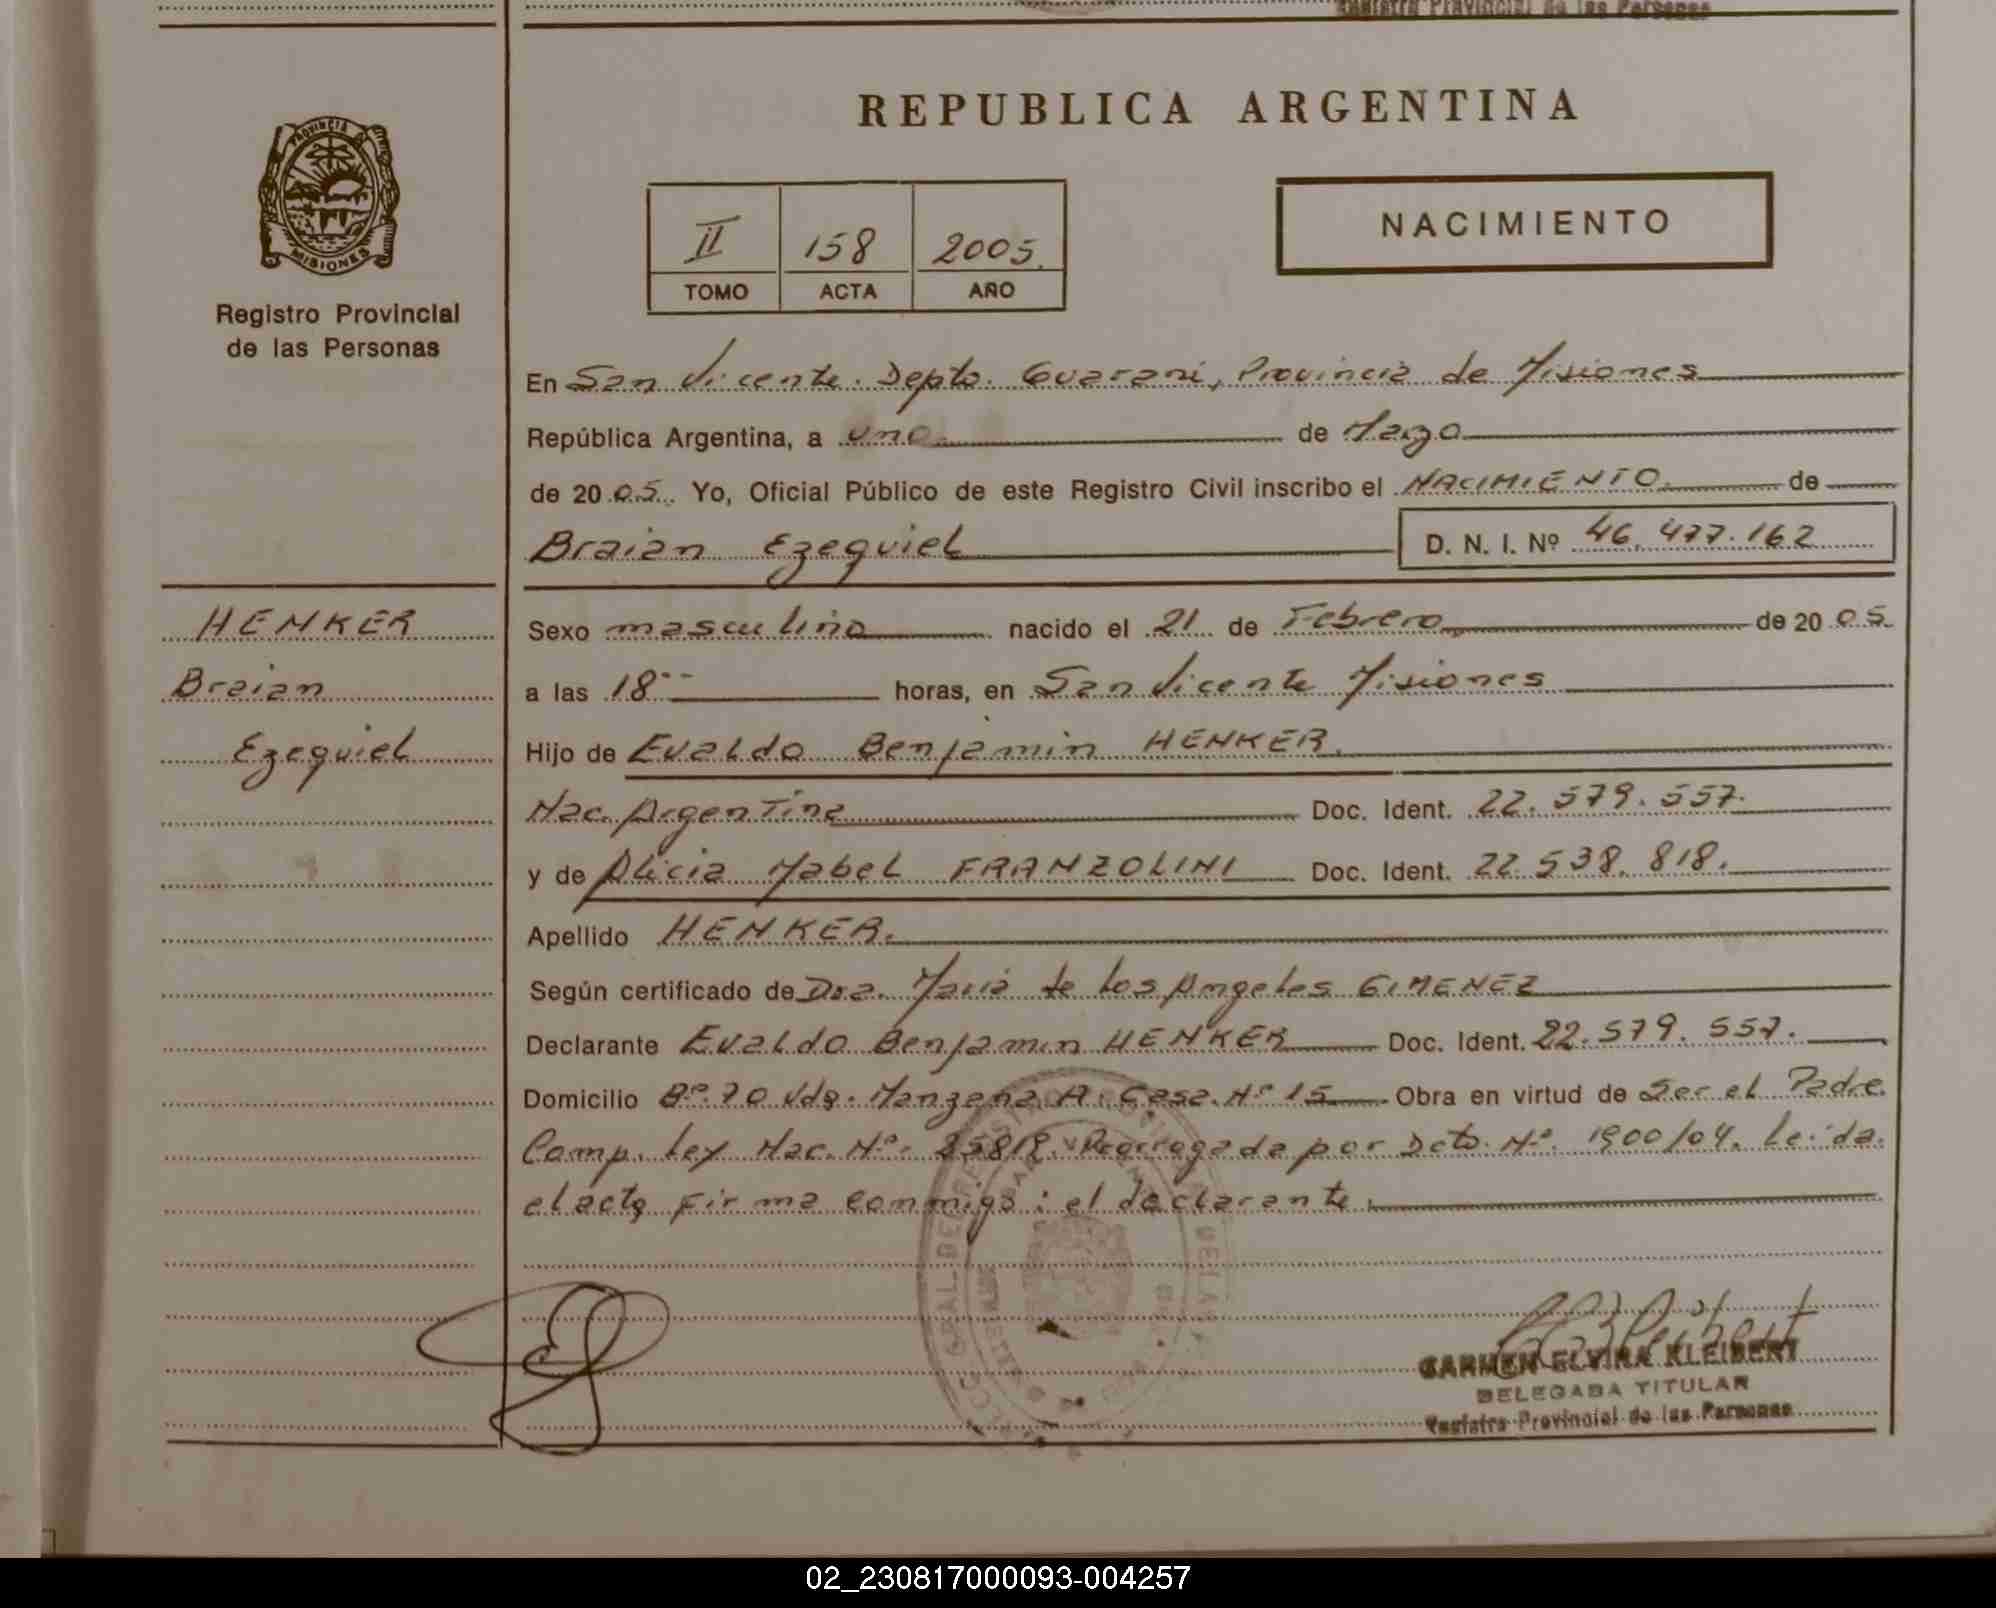 Registro Provincial de las Personas
REPUBLICA ARGENTINA
PROVINCIA DE
MISIONES
Registro Provincial
de las Personas
II 158 2005.
TOMO ACTA AÑO
NACIMIENTO
En San Vicente. Depto. Guarani, Provincia de Misiones
República Argentina, a uno. de Marzo
de 20 05. Yo, Oficial Público de este Registro Civil inscribo el NACIMIENTO. de
Braian Ezequiel D. N. I. Nº 46.477.162
HENKER
Braian
Ezequiel
Sexo masculino nacido el 21 de Febrero de 20 05.
a las 18 horas, en San Vicente Misiones
Hijo de Evaldo Benjamin HENKER.
Nac. Argentina Doc. Ident. 22.579.557.
y de Alicia Mabel FRANZOLINI Doc. Ident. 22.538.818.
Apellido HENKER.
Según certificado de Dra. Maria de Los Angeles GIMENEZ
Declarante Evaldo Benjamin HENKER Doc. Ident. 22.579.557.
Domicilio Bº. 70 Vdas. Manzana A. Casa. Nº 15 Obra en virtud de Ser el Padre.
Comp. Ley Nac. Nº. 25819. Prorrogada por Dcto. Nº. 1900/04. Leida.
el acta firma conmigo: el declarante.
CARMEN ELVIRA KLEIBERT
DELEGADA TITULAR
Registro Provincial de las Personas
02_230817000093-004257